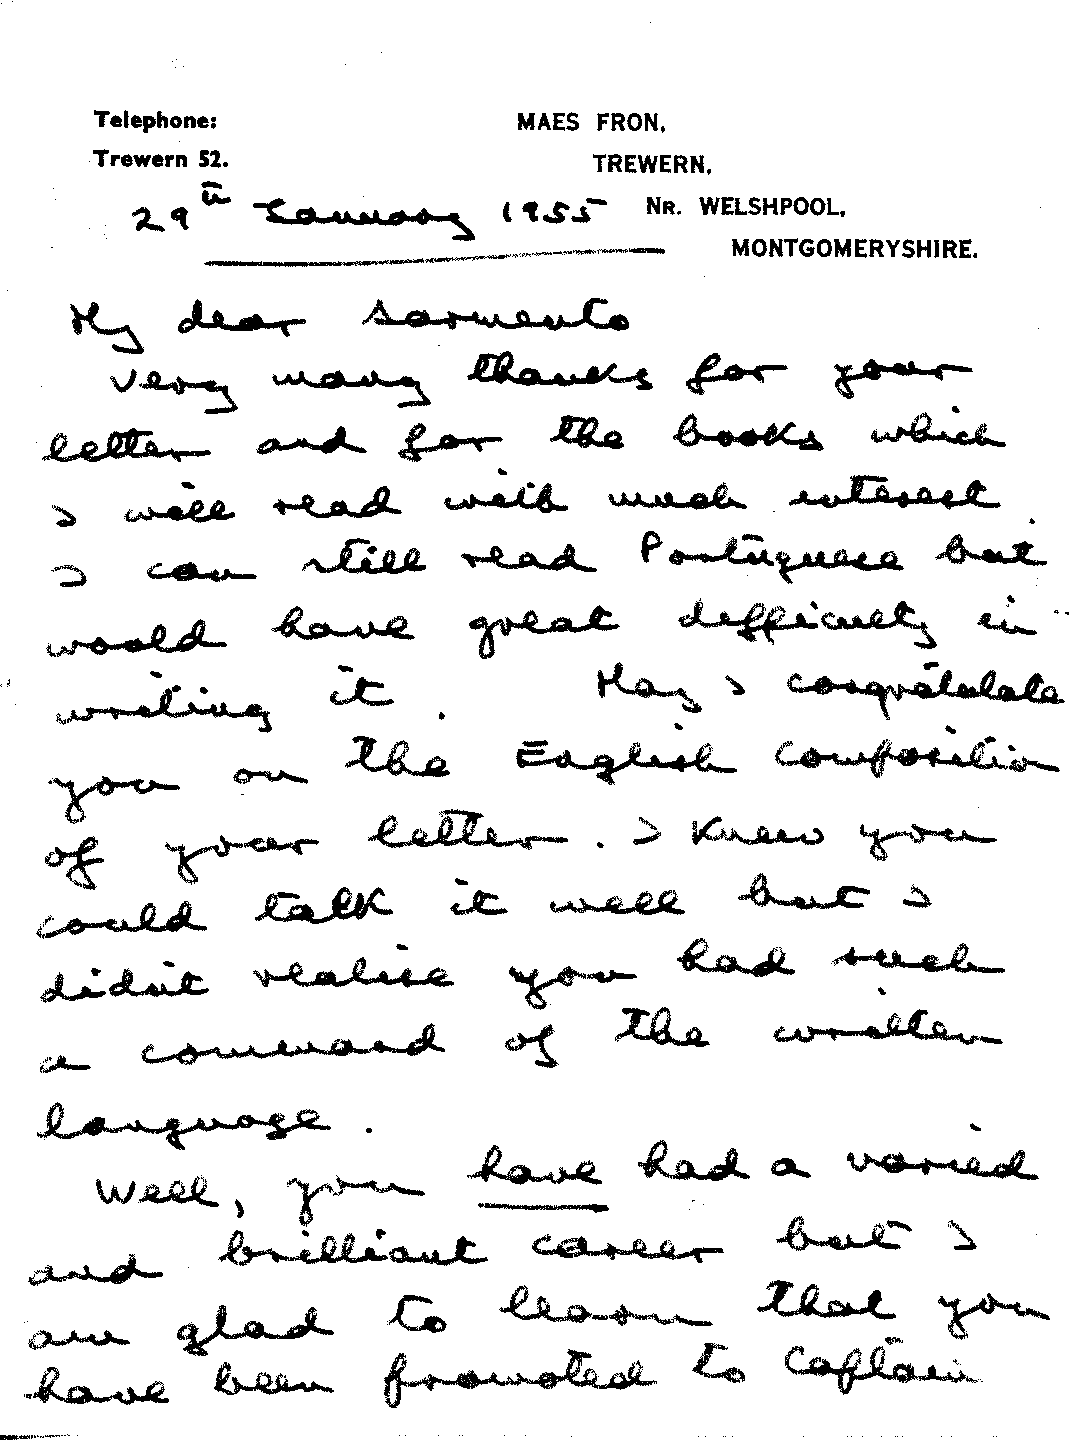 Telephone:
Trewern 52.
MAES FRON,
TREWERN,
NR. WELSHPOOL,
MONTGOMERYSHIRE.
29th January 1955
My dear Sarmento
Very many thanks for your
letter and for the books which
I will read with much interest.
I can still read Portuguese but
would have great difficulty in
writing it. May I congratulate
you on the English composition
of your letter. I knew you
could talk it well but I
didn't realise you had such
a command of the written
language.
Well, you have had a varied
and brilliant career but I
am glad to learn that you
have been promoted to Captain